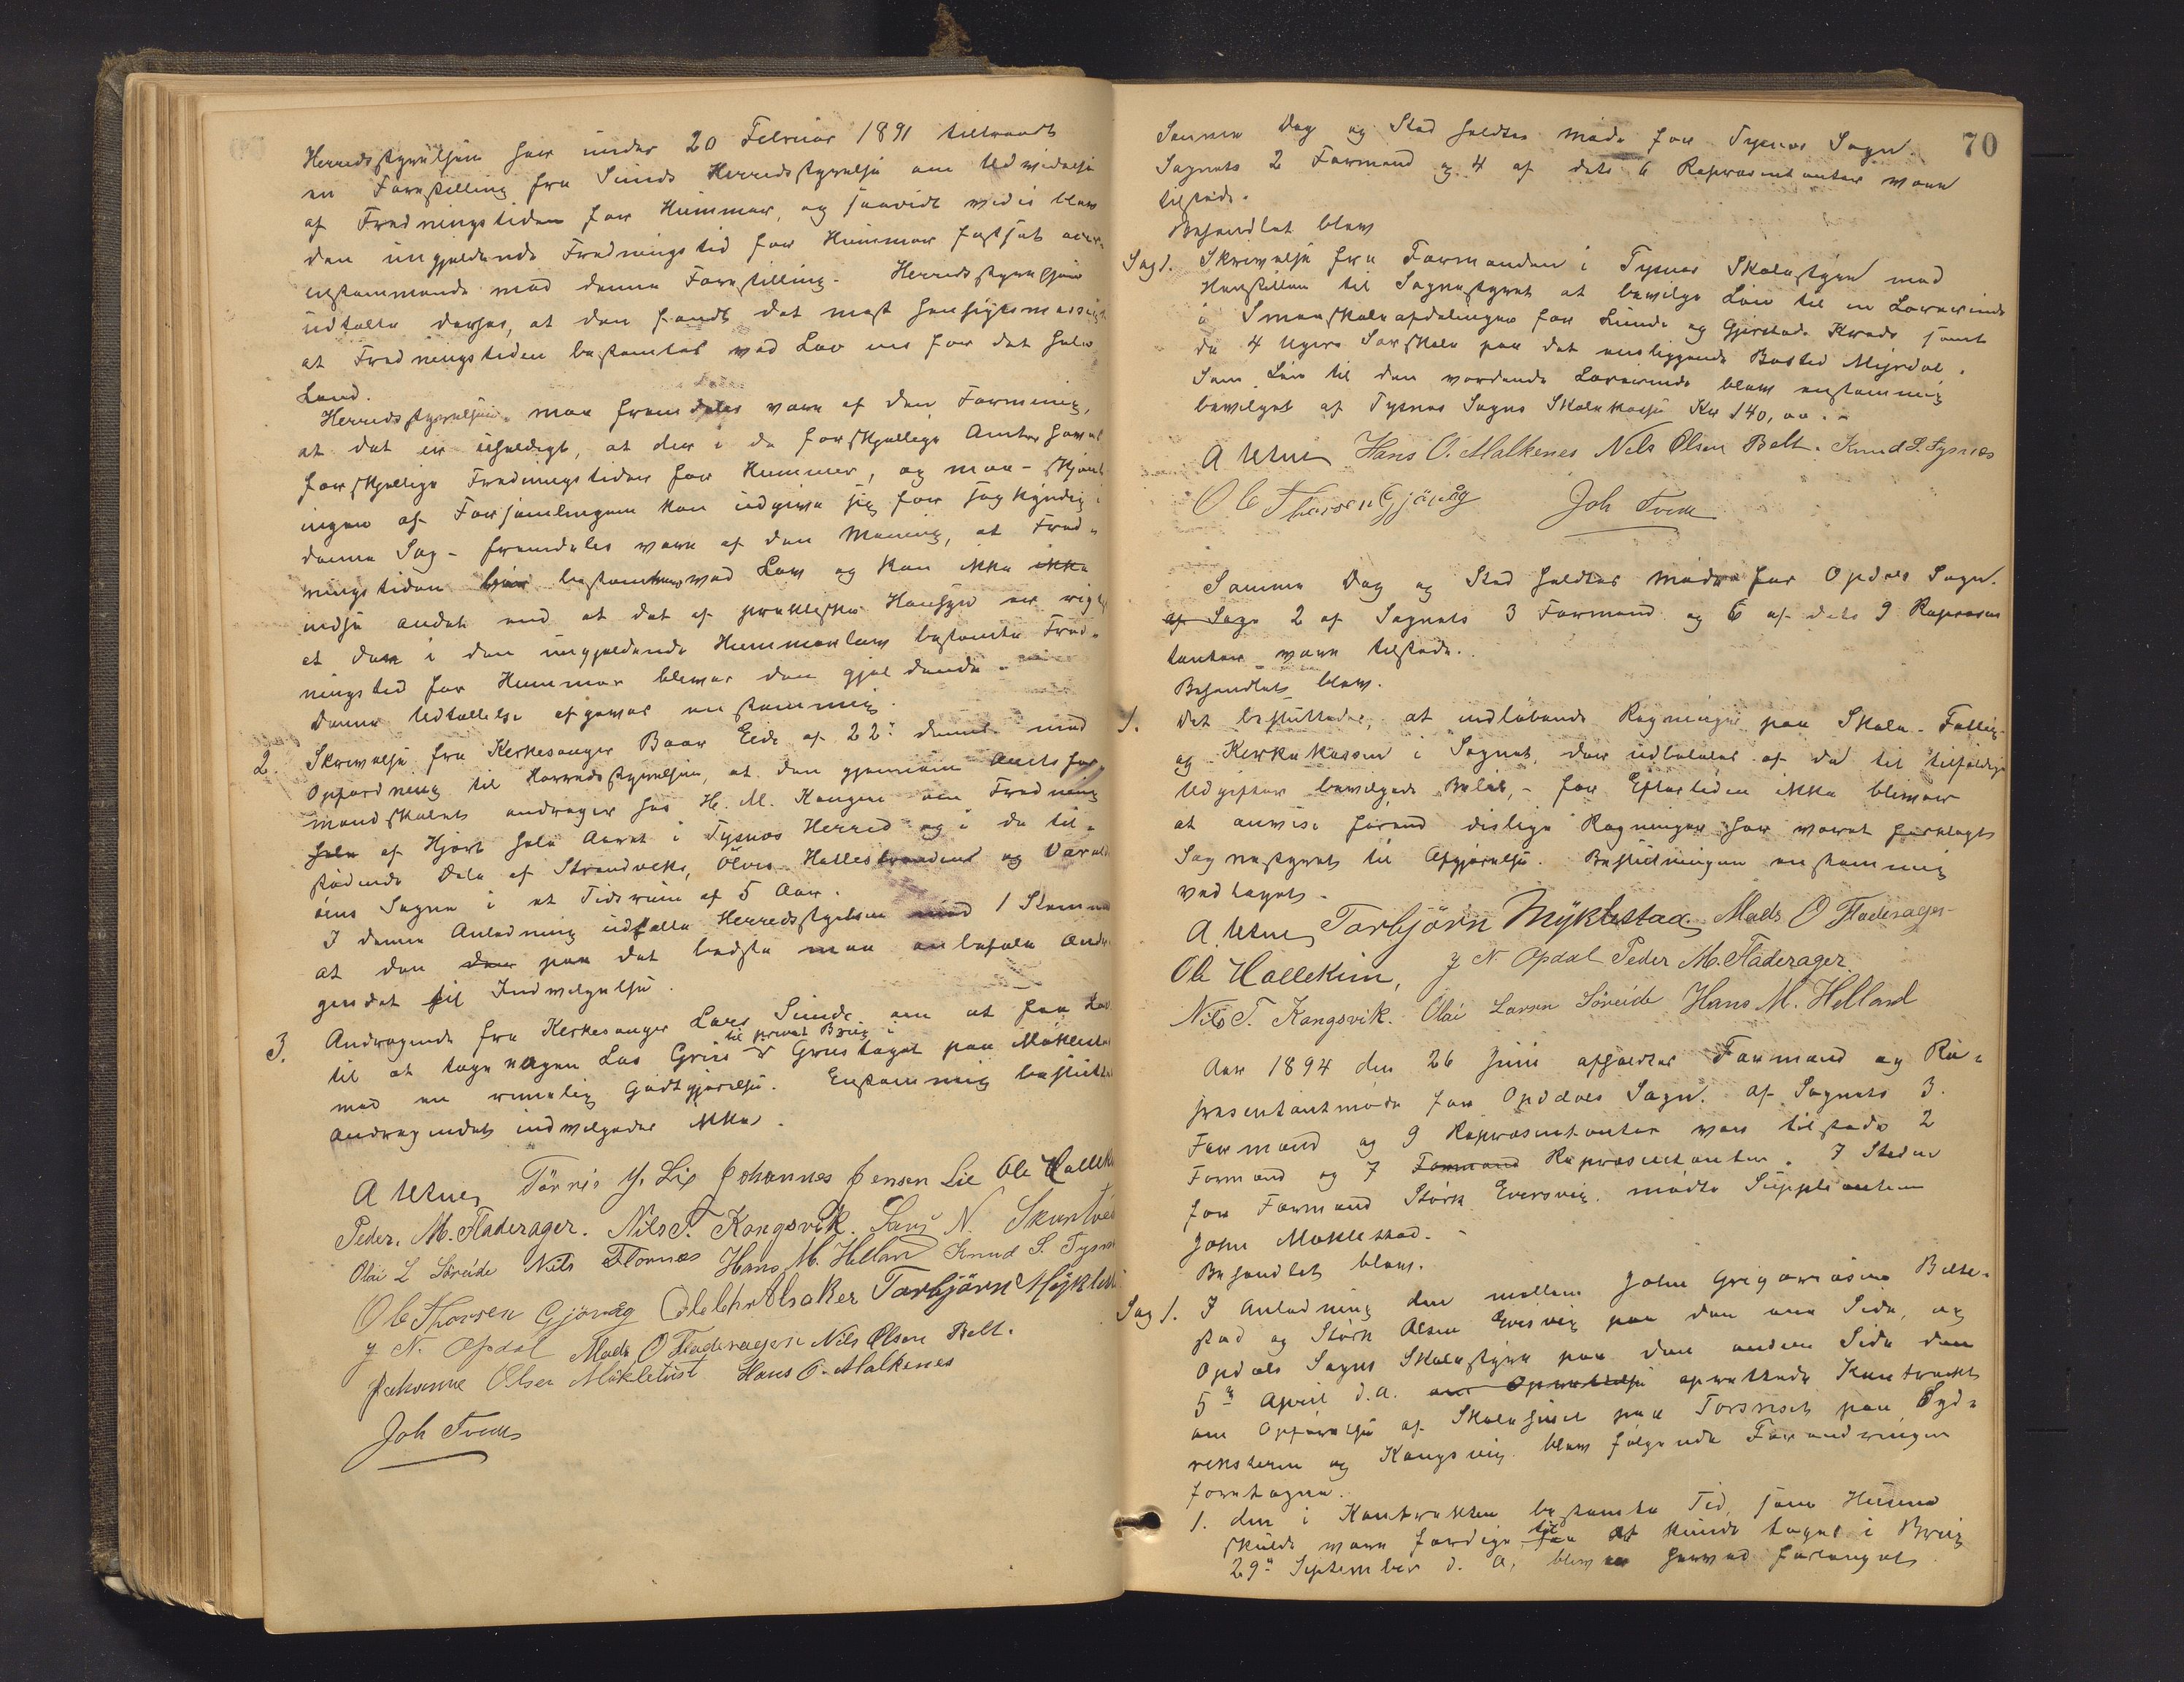 Herredsstyrelsen har under 20 Februar 1891 tiltraadt
en Forestilling fra Sunds Herredsstyrelse om Udvidelse
af Fredningstiden for Hummer, og saavidt vides blev
den nugjeldende Fredningstid for Hummer fastsat over-
enstemmende med denne Forestilling. Herredsstyrelsen
udtalte derhos, at den fandt det mest hensigtsmæssigt
at Fredningstiden bestemtes ved Lov ens for det hele
Land.
Herredsstyrelsen maa fremdeles være af den Formening,
at det er uheldigt, at der i de forskjellige Amter haves
forskjellige Fredningstider for Hummer, og maa - skjønt
ingen af Forsamlingen kan udgive sig for sagkyndig i
denne Sag - fremdeles være af den Mening, at Fred-
ningstiden bør bestemmes ved Lov og kan ikke ikke
indse andet end at det af praktiske Hensyn er rigtigst
at den i den nugjeldende Hummerlov bestemte Fred-
ningstid for Hummer bliver den gjeldende.
Denne Udtallelse afgaves enstemmig.
2. Skrivelse fra Kirkesanger Baar Eide af 22de dennes med
Opfordring til Herredsstyrelsen, at den gjennem Amtsfor-
mandskabet andrager hos H. M. Kongen om Fredning
hele af Hjort hele Aaret i Tysnes Herred og i de til-
stødende Dele af Strandviks, Ølves Hatlestrandens og Varalds-
øens Sogne i et Tidsrum af 5 Aar.
I denne Anledning udtalte Herredsstyrelsen mod 1 Stemme
at den den paa det bedste maa anbefale Andra-
gendet til Indvilgelse.
3. Andragende fra Kirkesanger Lars Sunde om at faa Lov
til at tage nogen Las Grus til privat Brug i Grustaget paa Møklestad
mod en rimelig Godtgjørelse. Enstemmig besluttet
Andragendet indvilgedes ikke.
A Uttne Törris J. Lie Johannes Jensen Lie Ole Hallek
Peder. M. Fladerager. Nils T. Kongsvik. Lars N. Skartve
Olai L Søreide Nils Flornæs Hans M. Helland Knud S. Tysn
Ole Thorsen Gjøvåg Ole Chr Alsaker Torbjörn Myklest
J N. Opdal Mads O Fladerager Nils Olsen Belt.
Johanne Olsen Mökletüst Hans O. Malkenes
Joh Tveit
70
Samme Dag og Sted holdtes Møde for Tysnes Sogn.
Sognets 2 Formænd og 4 af dets 6 Repræsentanter vare
tilstede.
Behandlet blev
Sag 1. Skrivelse fra Formanden i Tysnes Skolestyre med
Henstillen til Sognestyret at bevilge Løn til en Lærerinde
i Smaaskoleafdelingen for Lunde og Gjerstad Kreds samt
de 4 Ugers Særskole paa det ensliggende Bosted Myrdal.
Som Løn til den vordende Lærerinde blev enstemmig
bevilget af Tysnes Sogns Skolekasse Kr 140,00.-
A Uttne Hans O. Malkenes Nils Olsen Belt. Knud S. Tysnæs
Ole Thorsen Gjøvåg Joh Tveit
Samme Dag og Sted holdtes Møde for Opdals Sogn.
af Sogn 2 af Sognets 3 Formænd og 6 af dets 9 Repræsen
tanter vare tilstede.
Behandlet blev.
1. Det besluttedes, at indløbende Regninger paa Skole- Fattig-
og Kirkekassen i Sognet, der udbetales af de til tilfældige
Udgifter bevilgede Beløb, - for Eftertiden ikke bliver
at anvise førend deslige Regninger har været forelagt
Sognestyret til Afgjørelse. Beslutningen enstemmig
vedtaget.
A. Uttne Torbjörn Myklestad Mads O Fladerager
Ole Hallekim, J N. Opdal Peder M. Fladerager.
Nils T. Kongsvik. Olai Larsen Søreide Hans M. Helland
Aar 1894 den 26 Juni afholdtes Formænd og Re-
præsentantmøde for Opdals Sogn. af Sognets 3
Formænd og 9 Repræsentanter vare tilstede 2
Formænd og 7 Formænd Repræsentanter. I Stedet
for Formand Størk Eversvig mødte Suppleanten
John Møklestad.
Behandlet blev.
Sag 1. I Anledning den mellem John Grigoriusen Bilde-
stad og Størk Olsen Eversvig paa den ene Side, og
Opdals Sogns Skolestyre paa den anden Side den
5te April d.A. om Oprettelse oprettede Kontrakt
om Opførelse af Skolehuset paa Torsnes paa Syd-
reksteren og Kongsvig blev følgende Forandringer
foretagne.
1. den i Kontrakten bestemte Tid, som Husene
skulde være færdige til at kunde tages i Brug
29de September d. A. blev herved forlænget